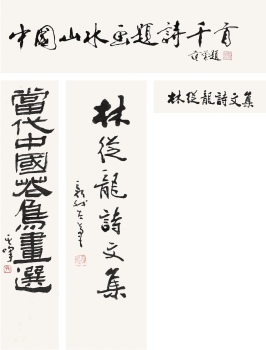 中國山水画題詩千首
當代中國花鳥畫選
林從龍詩文集
林從龍詩文集